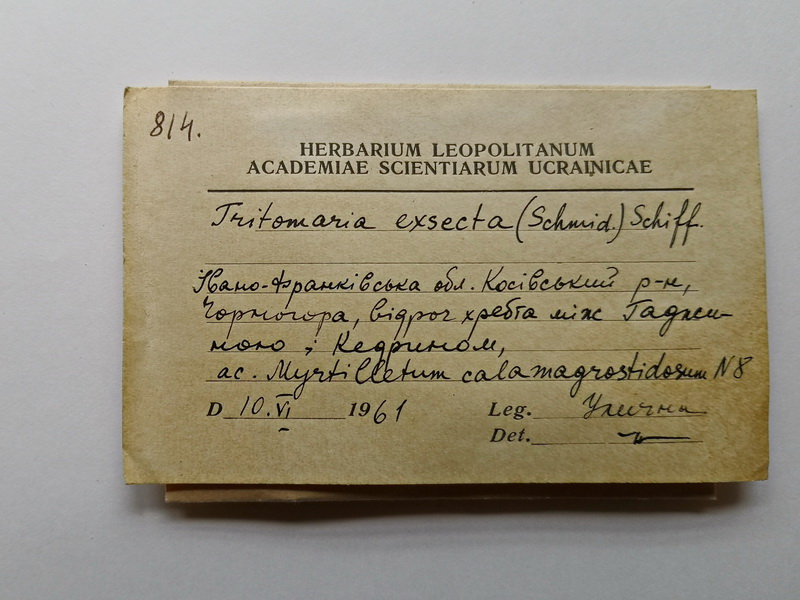 814.
HERBARIUM LEOPOLITANUM
ACADEMIAE SCIENTIARUM UCRAINICAE
Tritomaria exsecta (Schmid.) Schiff.
Івано-Франківська обл. Косівський р-н,
Чорногора, відрог хребта між Гаджи-
ною і Кедрином,
ac. Myrtilletum calamagrostidosum N8
D 10.VI 1961 Leg. Улична
Det.